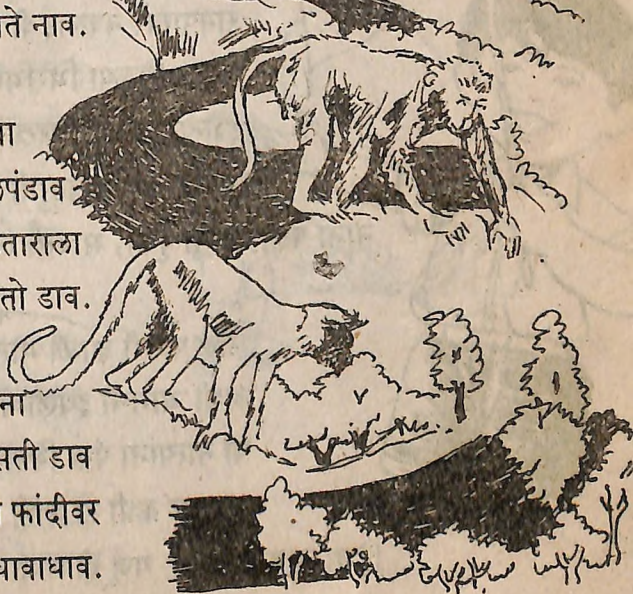 ते नाव.
ा
पंडाव
ताराला
तो डाव.
ना
सती डाव
फांदीवर
धावाधाव.